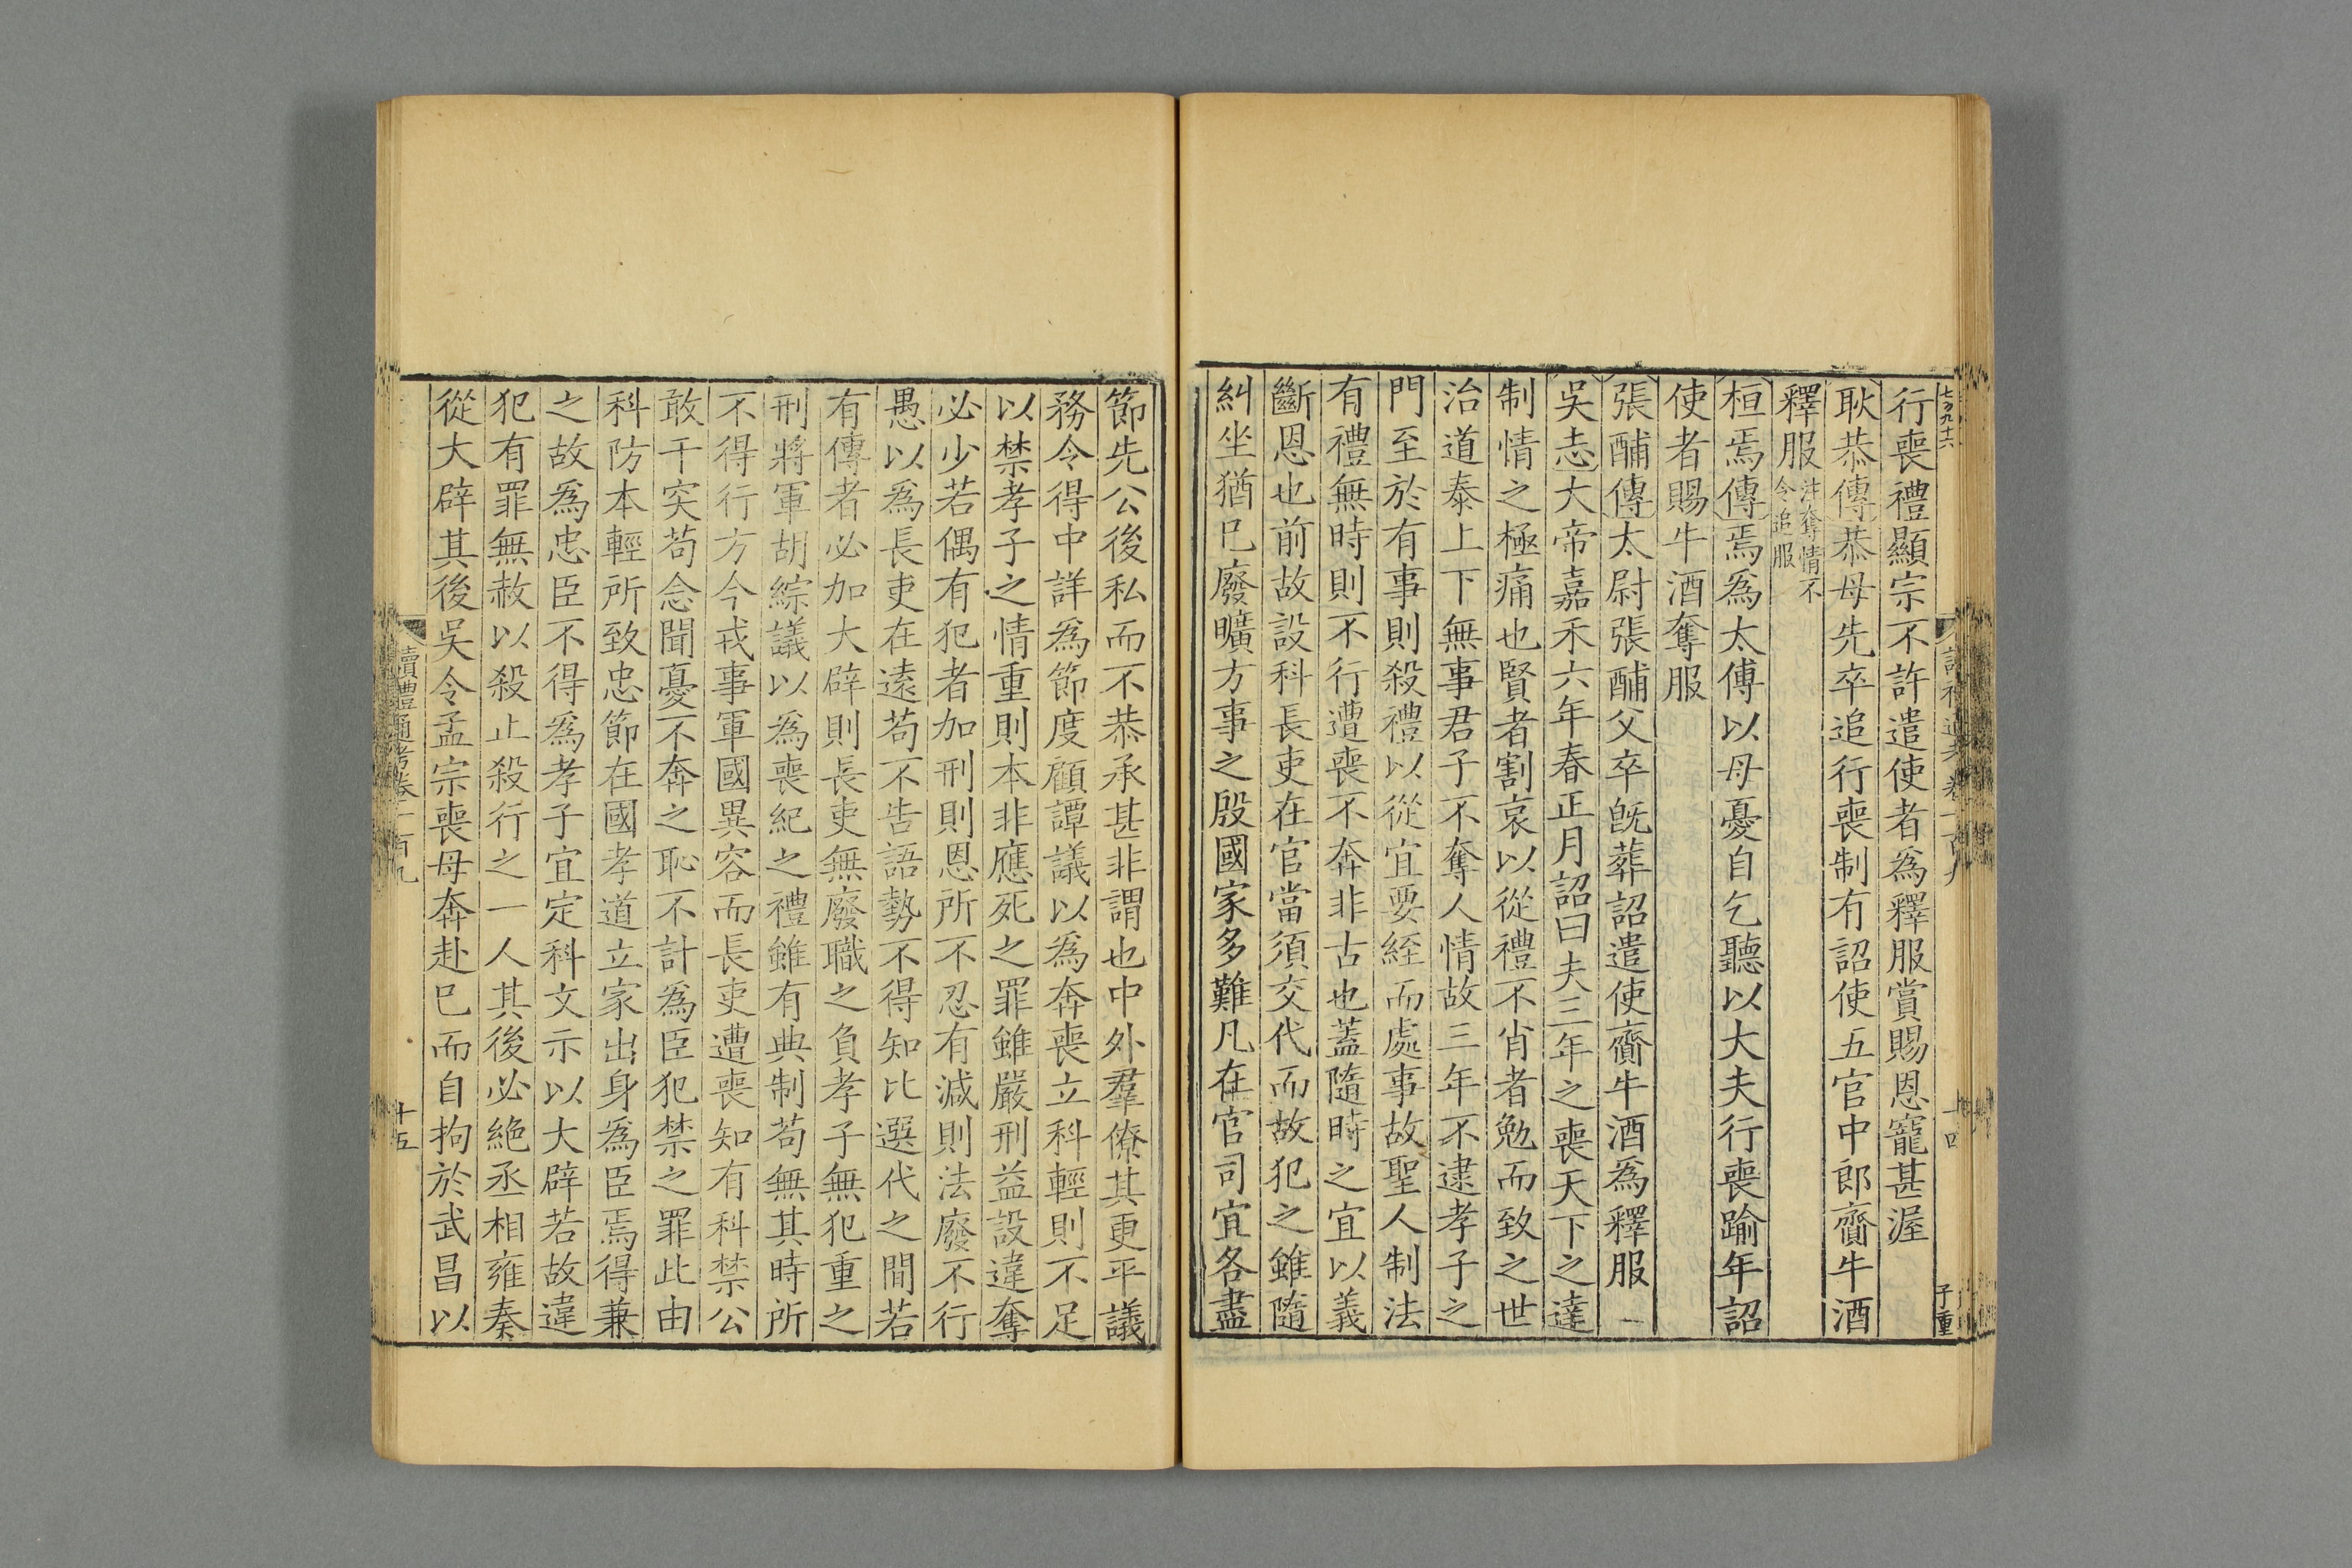 行喪禮顯宗不許遣使者爲釋服賞賜恩寵甚渥
耿恭傳恭母先卒追行喪制有詔使五官中郎齎牛酒
釋服注奪情不令追服
桓焉傳焉爲太傅以母憂自乞聽以大夫行喪踰年詔
使者賜牛酒奪服
張酺傳太尉張酺父卒旣葬詔遣使齎牛酒爲釋服
吳志大帝嘉禾六年春正月詔曰夫三年之喪天下之達
制情之極痛也賢者割哀以從禮不肖者勉而致之世
治道泰上下無事君子不奪人情故三年不逮孝子之
門至於有事則殺禮以從宜要絰而處事故聖人制法
有禮無時則不行遭喪不奔非古也蓋隨時之宜以義
斷恩也前故設科長吏在官當須交代而故犯之雖隨
糾坐猶巳廢曠方事之殷國家多難凡在官司宜各盡
節先公後私而不恭承甚非謂也中外羣僚其更平議
務令得中詳爲節度顧譚議以爲奔喪立科輕則不足
以禁孝子之情重則本非應死之罪雖嚴刑益設違奪
必少若偶有犯者加刑則恩所不忍有減則法廢不行
愚以爲長吏在遠苟不告語勢不得知比選代之間若
有傳者必加大辟則長吏無廢職之負孝子無犯重之
刑將軍胡綜議以爲喪紀之禮雖有典制苟無其時所
不得行方今戎事軍國異容而長吏遭喪知有科禁公
敢干突苟念聞憂不奔之恥不計爲臣犯禁之罪此由
科防本輕所致忠節在國孝道立家出身爲臣焉得兼
之故爲忠臣不得爲孝子宜定科文示以大辟若故違
犯有罪無赦以殺止殺行之一人其後必絶丞相雍奏
從大辟其後吳令孟宗喪母奔赴巳而自拘於武昌以
讀禮通考卷一百九
十五
十四
子重